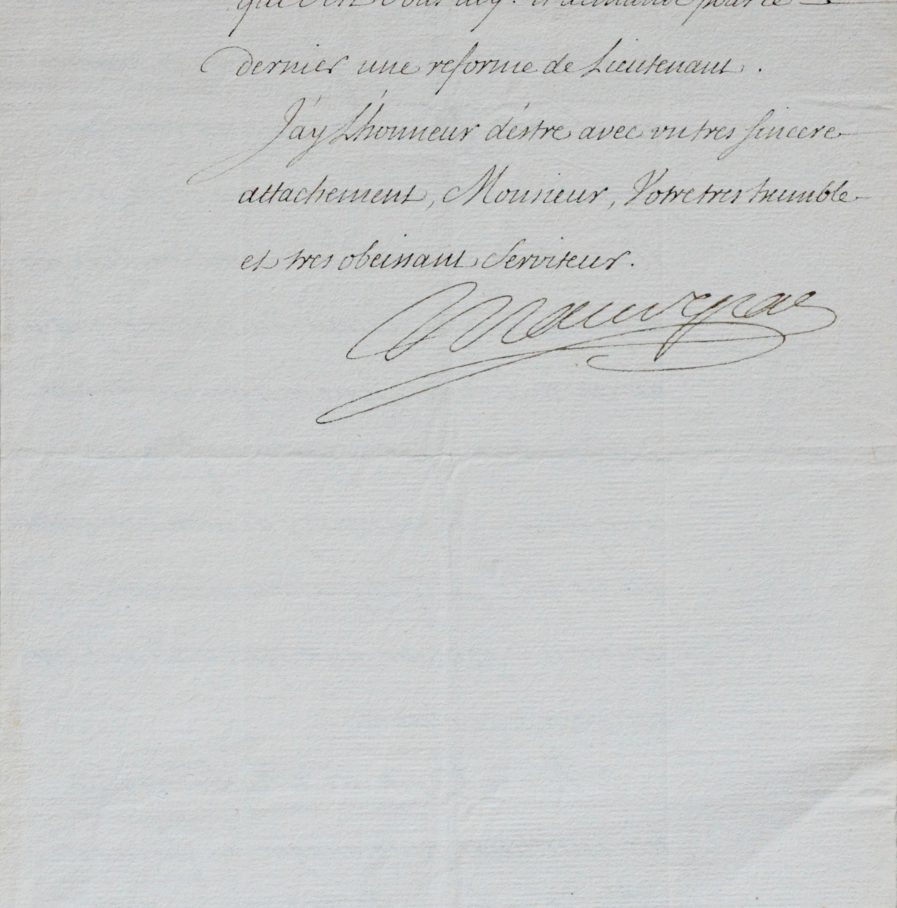 demande pour le
dernier une reforme de Lieutenant.
J'ay L'honneur d'éstre avec un tres sincere
attachement, Monsieur, Votre tres humble
et tres obeissant Serviteur.